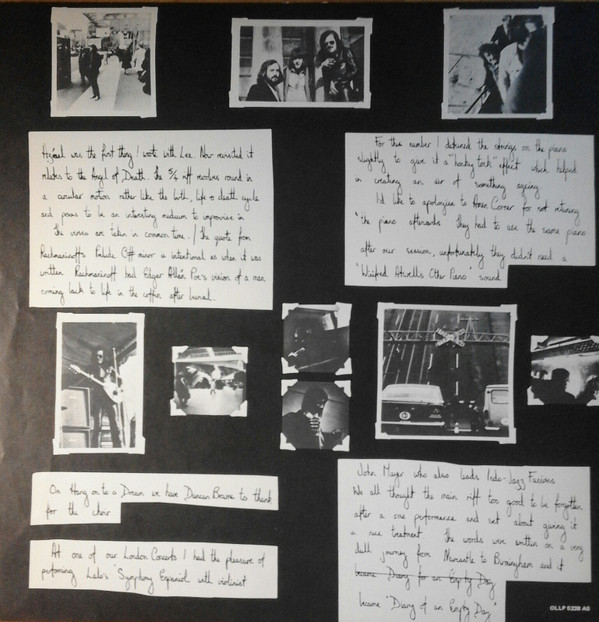 Azrael was the first thing I wrote with Lee. Now revisited it
relates to the Angel of Death. the 5/4 riff revolves round in
a circular motion rather like the birth, life & death cycle
and proves to be an interesting medium to improvise in
the verses are taken in common time. / the quote from
Rachmaninoff's Prelude C# minor is intentional as when it was
written Rachmaninoff had Edgar Allan Poe's vision of a man
coming back to life in the coffin after burial.
For this number I detuned the strings on the piano
slightly to give it a "honky tonk" effect which helped
in creating an air of something ageing.
I'd like to apologise to Corner for not retuning
the piano afterwards they had to use the same piano
after our session, unfortunately they didn't need a
'Winifred Atwell's Other Piano' sound.
On Hang on to a Dream we have Duncan Browne to thank
for the choir
At one of our London Concerts I had the pleasure of
performing Lalo's 'Symphony Espanol with violinist
John Mayer who also leads Indo-Jazz Fusions
We all thought the main riff too good to be forgotten
after a one performance and set about giving it
a new treatment. the words were written on a very
dull journey from Newcastle to Birmingham and it
became Diary for an Empty Day
became "Diary of an Empty Day"
OLLP 5238 AS